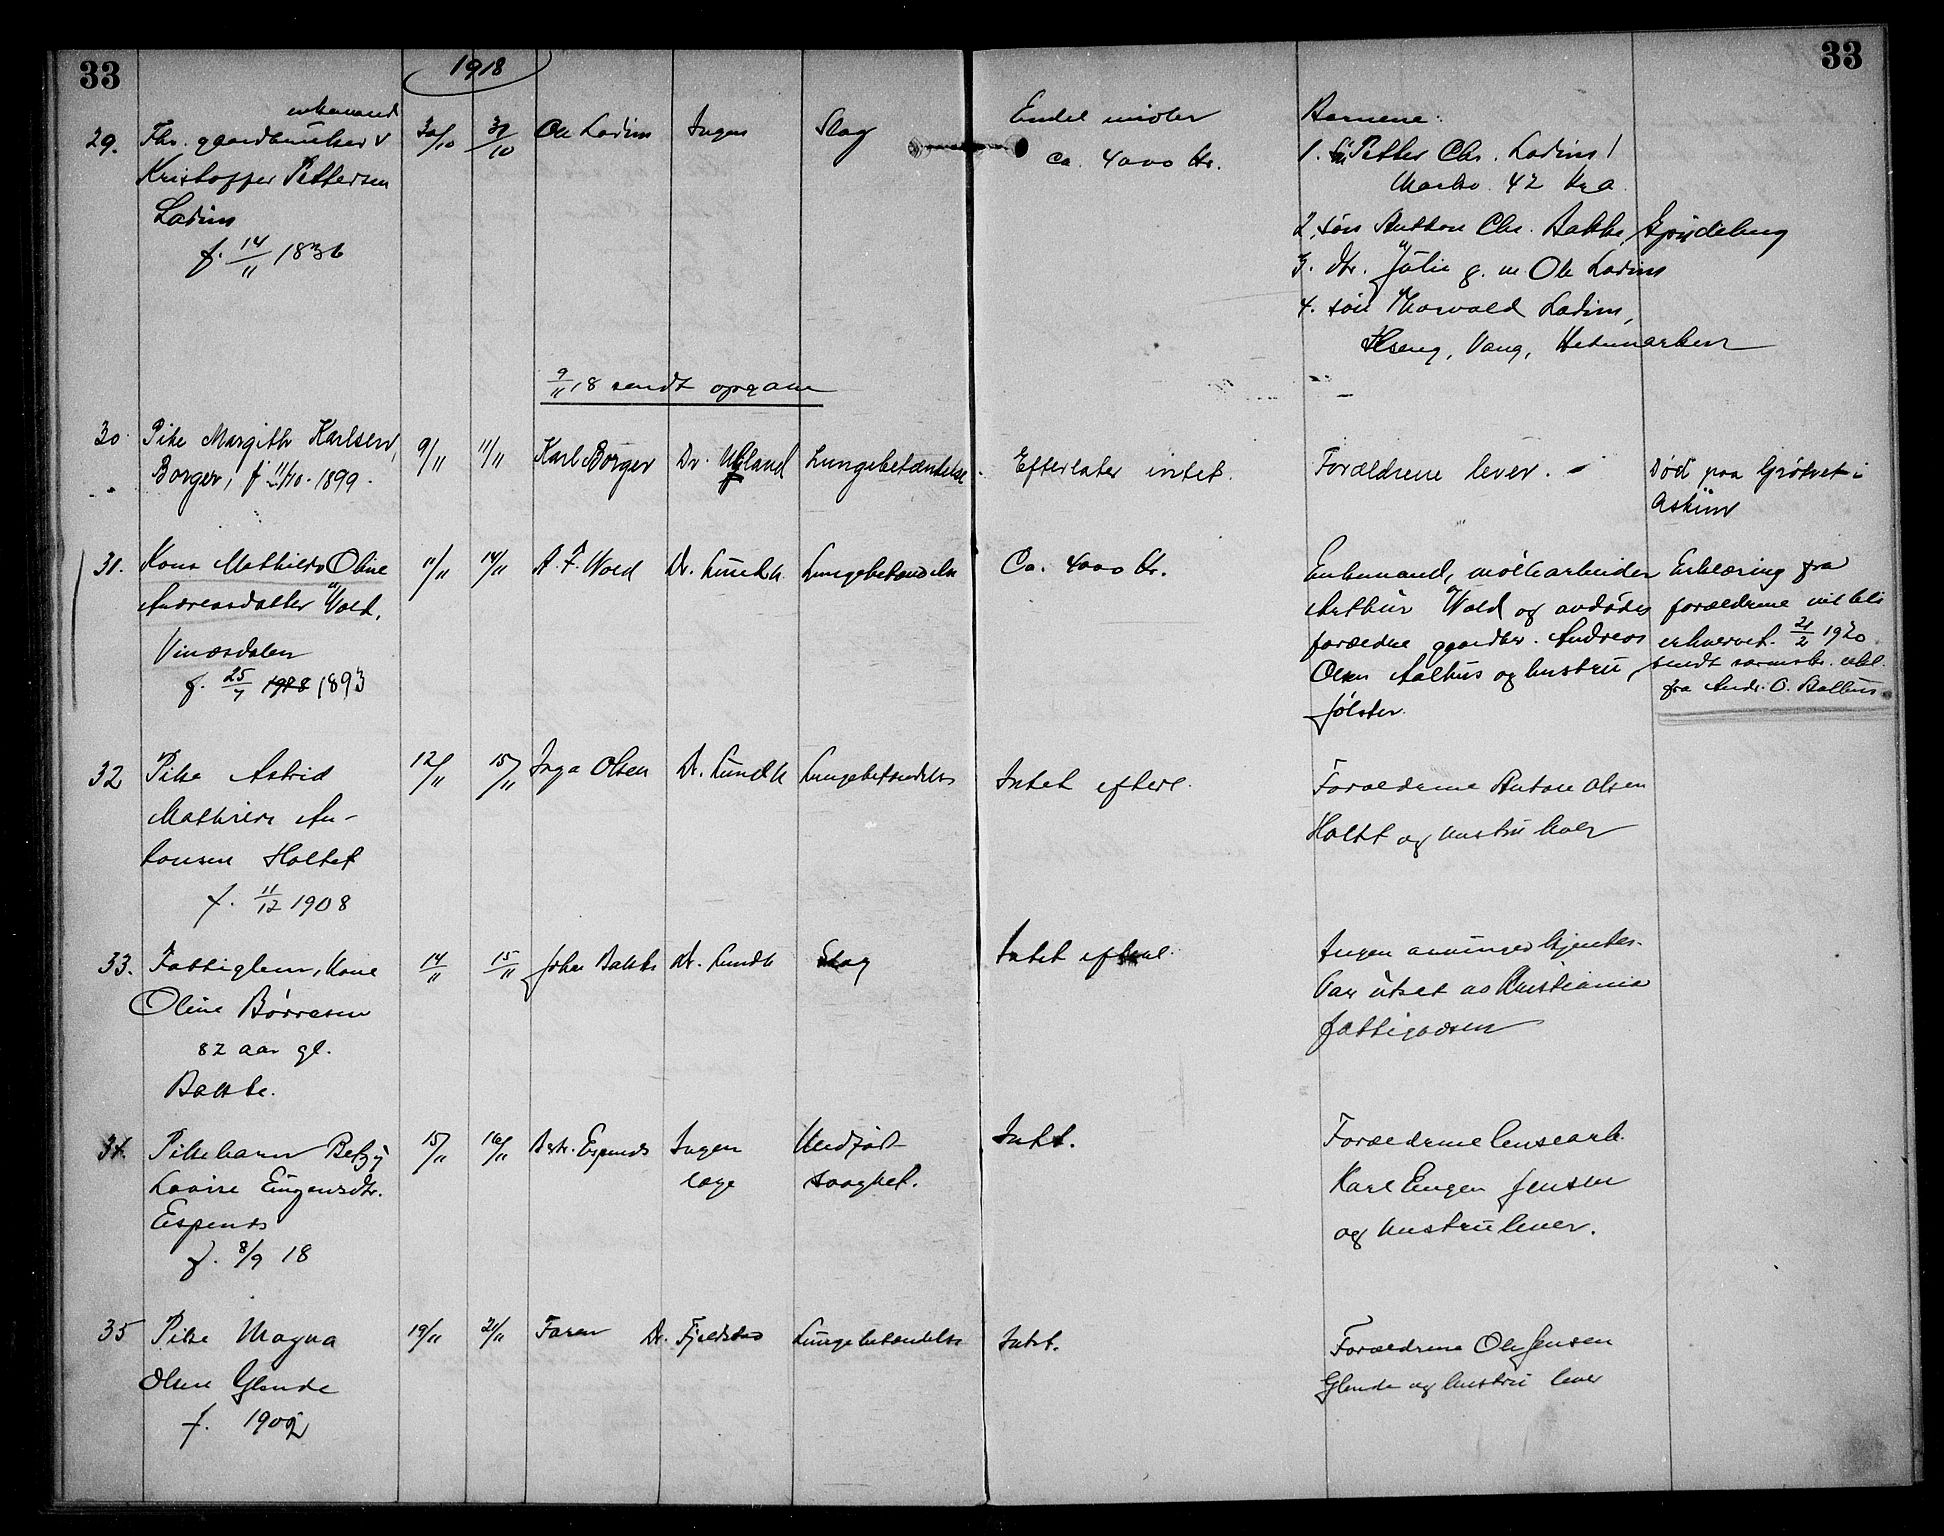 33
1918
33
29.
enkemand
Fhr. gaardbruker v
Kristoffer Pettersen
Ladim
f. 14/11 1836
30/10
31/10
Ole Ladim
Ingen
Slag
Endel midler
ca. 4000 kr.
Barnene:
1. Petter Chr. Ladim
42 Kr.a
2. søn Anton Chr. Bakke, Spydeberg
3. dtr. Julie g. m. Ole Ladim
4. søn Thorvald Ladim,
Ilseng, Vang, Hedemarken
9/11 18 sendt opgave
30.
Pike Margith Karlsen,
Borger, f. 11/10. 1899.
9/11
11/11
Karl Borger
Dr. Ulland
Lungebetændelse.
Efterlater intet.
Forældrene lever.
Død paa Grøtvet i
Askim
31.
Kona Mathilde Oline
Andreasdatter Wold,
Vinæsdalen
f. 25/7 1988 1893
11/11
14/11
A. F. Wold
Dr. Lundh
Lungebetændelse
Ca. 4000 kr.
Enkemand, møllearbeider
Arthur Wold og avdødes
forældre gaardbr. Andreas
Olsen Aalhus og hustru,
Jølster.
Erklæring fra
forældrene vil bli
erhvervet. 21/2 1920
sendt
fra Andr. O. Aalhus.
32
Pike Astrid
Mathisen An-
tonsen Holtet
f. 11/12 1908
12/11
15/11
Inga Olsen
Dr. Lundh
Lungebetændelse
Intet efterl.
Forældrene Anton Olsen
Holtet og hustru lever
33.
Fattiglem, Kone
Oline Børresen
82 aar gl.
Bakke.
14/11
15/11
Johan Bakke
Dr. Lundh
Slag
Intet efterl.
Ingen arvinger kjendes.
Var utsat av Kristiania
fattigvæsen
34.
Pikebarn Betzy
Lovise Eugensdtr.
Espenes
f. 8/9 18
15/11
16/11
Espenes
Ingen
læge
Medfødt
svaghet.
Intet.
Forældrene lensearb.
Karl Eugen Jensen
og hustru lever.
35
Pike Magna
Olsen Glende
f. 1902
19/11
21/11
Faren
Dr. Fjeldstad
Lungebetændelse
Intet.
Forældrene Ole Jensen
Glende og hustru lever